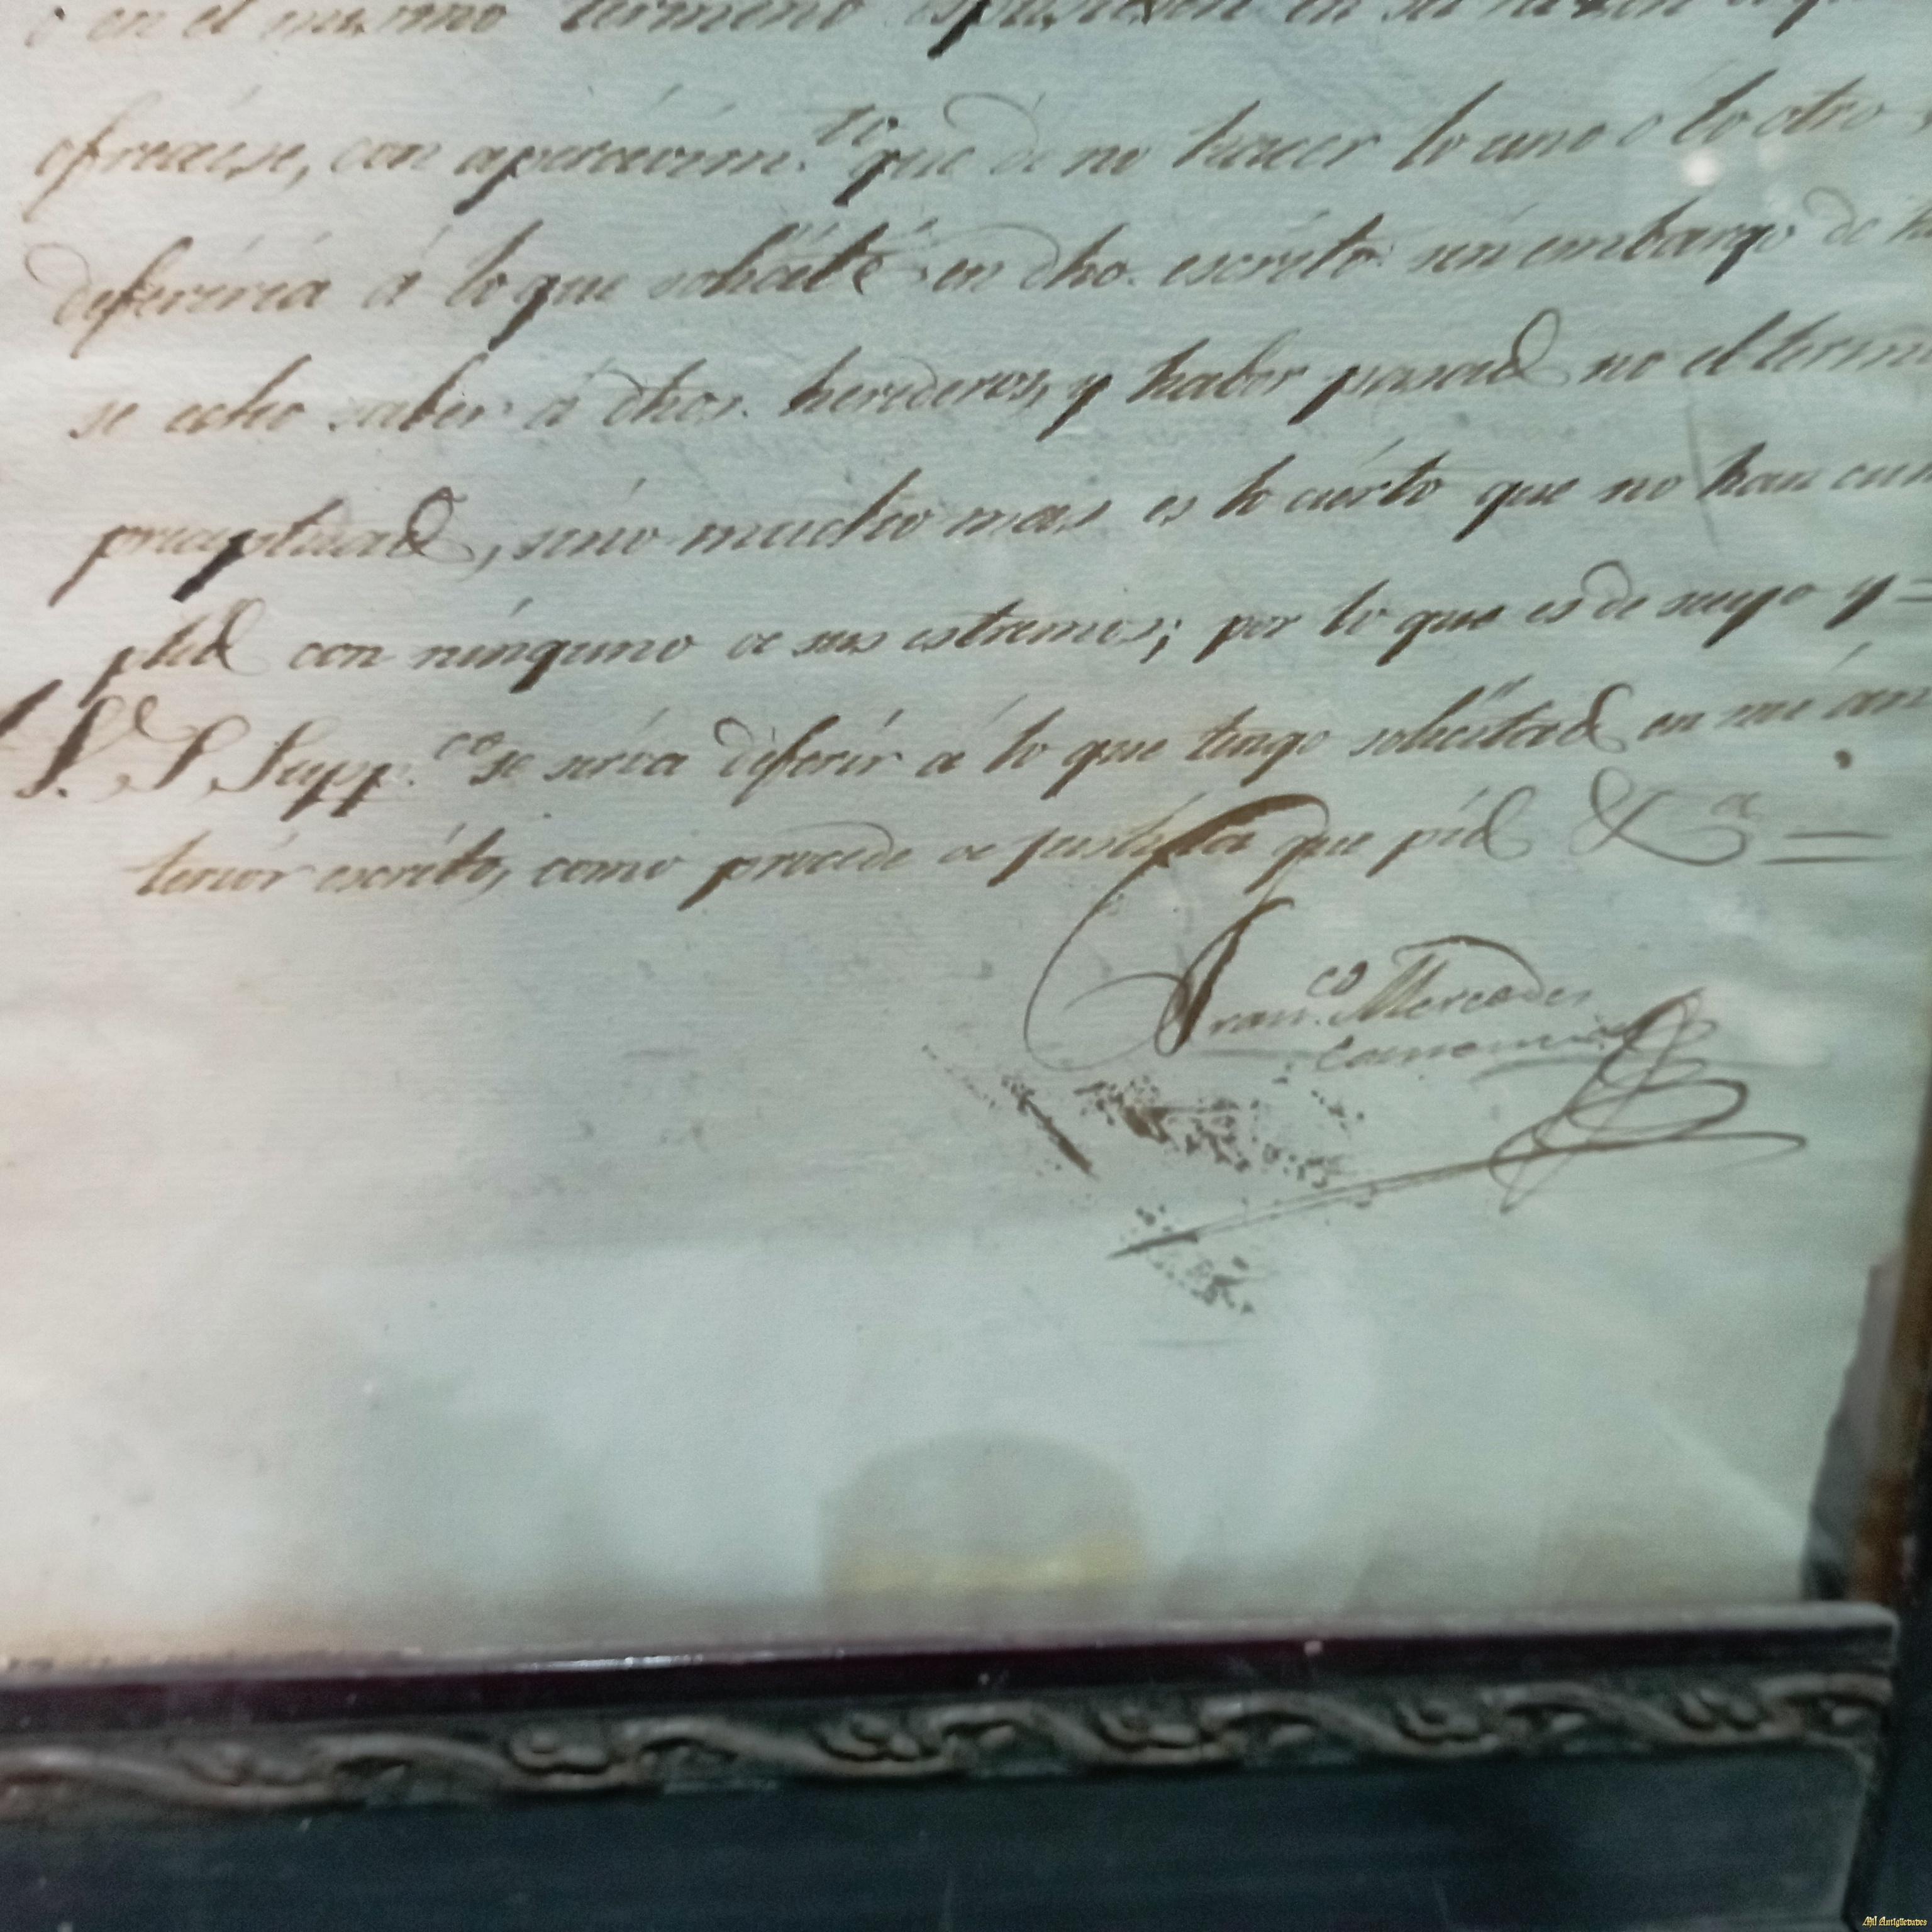 ó en el mismo termino espusiesen en su razon lo que
ofreciese, con apercivim.to que dé no hacer lo uno o lo otro se
deferiria á lo que solicité en dho. escrito: sin embargo de ha
se echo saber á dhos. herederos, y haber pasado no el termi
precyptuado, sino mucho mas es lo cierto que no han cum
plido con ninguno de sus estremos; por lo que es de suyo y =
S. S. Supp.co se sirva diferir á lo que tengo solicitado en mi an
terior escrito, como procede de justicia que pido &a =
Fran.co Mercader